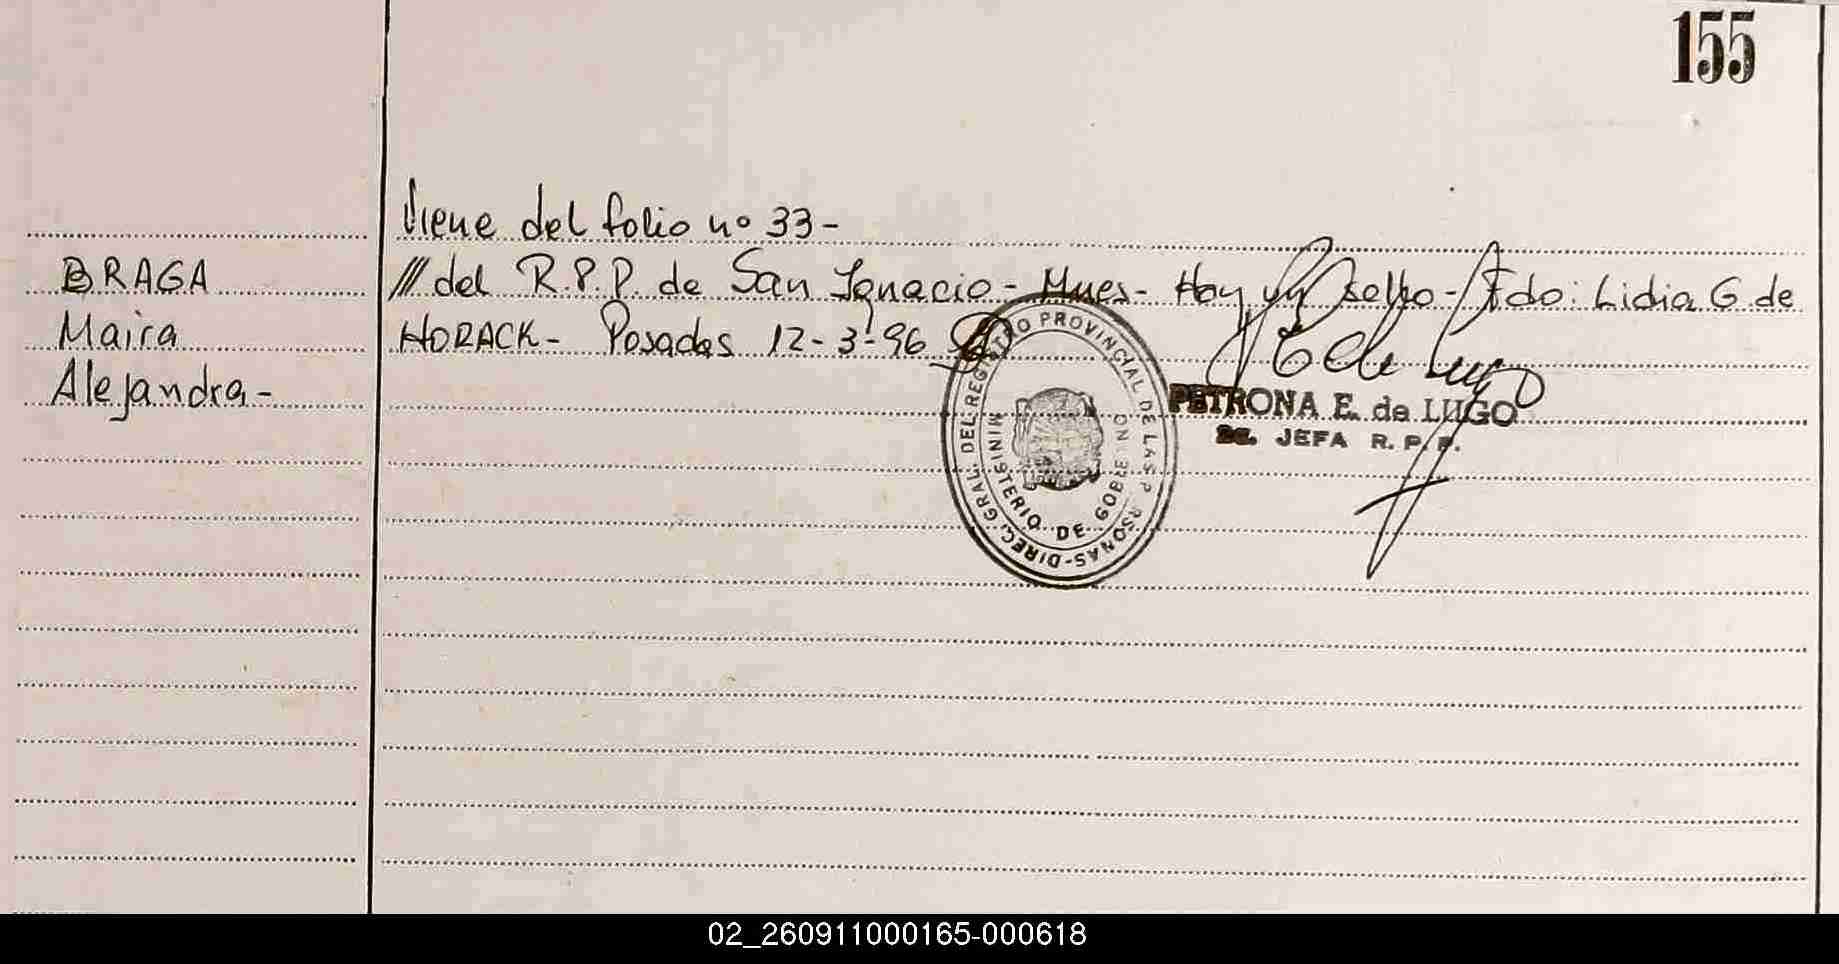 155
Viene del folio nº 33-
BRAGA
Maira
Alejandra-
/// del R.P.P. de San Ignacio - Mnes- Hay un sello - Fdo: Lidia G. de
HORACK- Posadas 12-3-96
DIREC. GRAL. DEL REGISTRO PROVINCIAL DE LAS P RSONAS-
MINISTERIO DE GOBIERNO
PETRONA E. de LUGO
JEFA R. P. P.
02_260911000165-000618